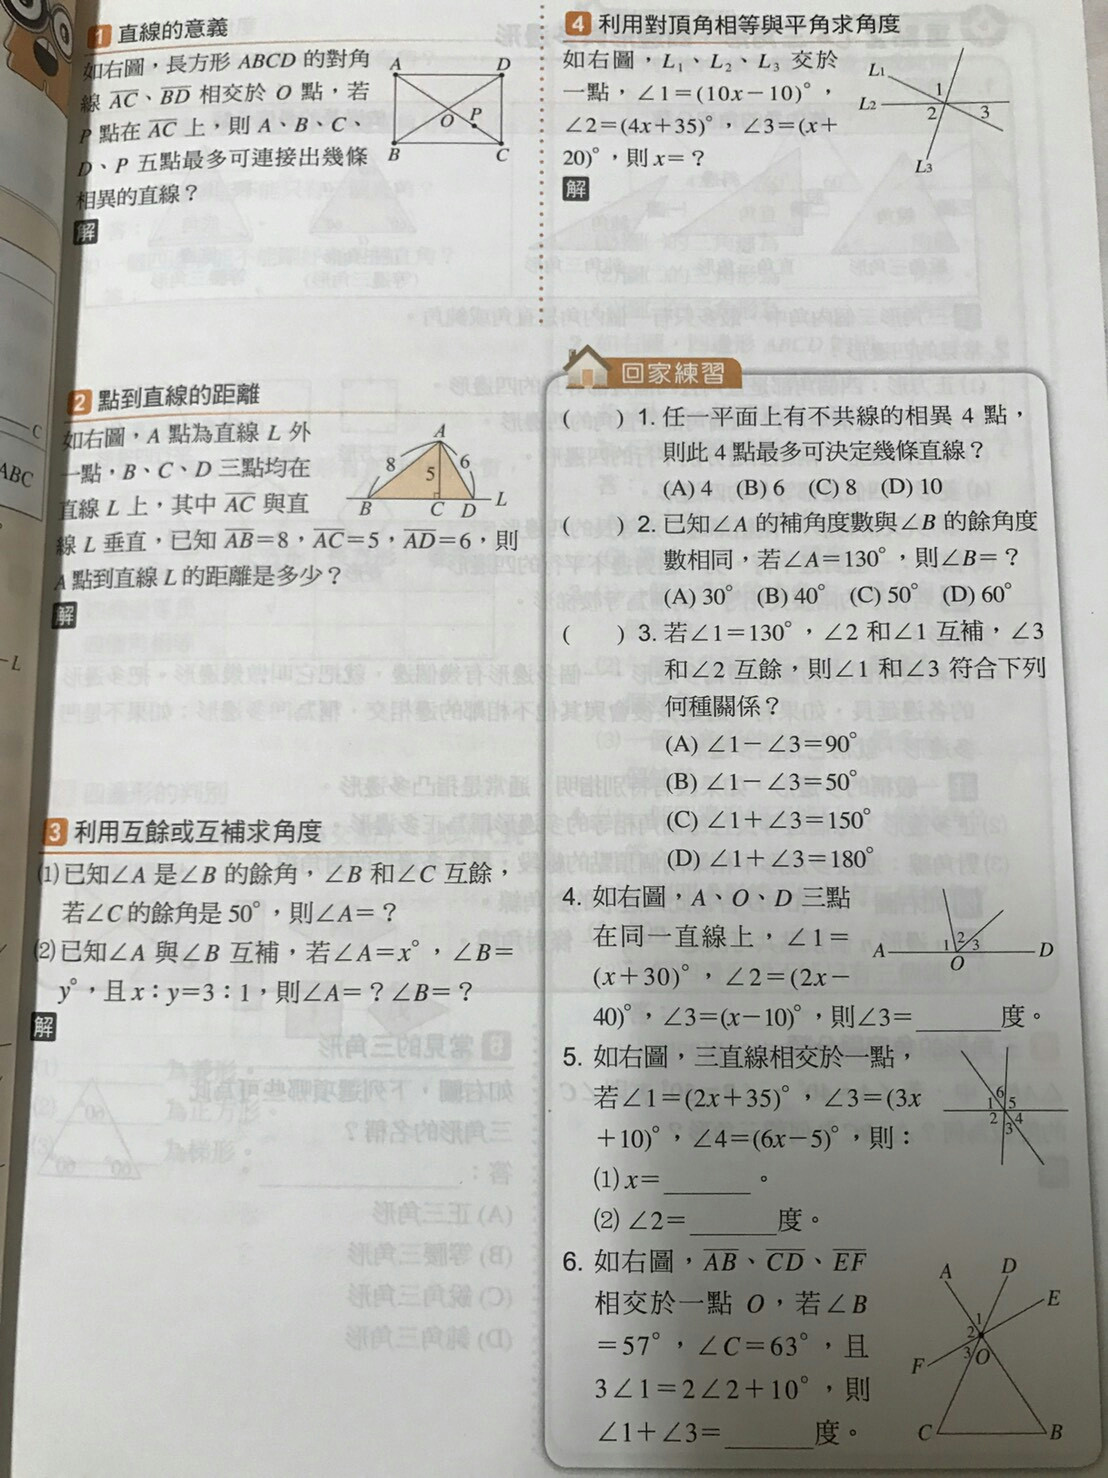 1 直線的意義
如右圖，長方形 ABCD 的對角
線 AC、BD 相交於 O 點，若
P 點在 AC 上，則 A、B、C、
D、P 五點最多可連接出幾條
相異的直線？
A D
O P
B C
解
2 點到直線的距離
如右圖，A 點為直線 L 外
一點，B、C、D 三點均在
直線 L 上，其中 AC 與直
線 L 垂直，已知 AB=8，AC=5，AD=6，則
A 點到直線 L 的距離是多少？
A
8 5 6
B C D L
解
3 利用互餘或互補求角度
⑴已知∠A 是∠B 的餘角，∠B 和∠C 互餘，
若∠C的餘角是 50°，則∠A=？
⑵已知∠A 與∠B 互補，若∠A=x°，∠B=
y°，且 x：y=3：1，則∠A=？∠B=？
解
4 利用對頂角相等與平角求角度
如右圖，L1、L2、L3 交於
一點，∠1=(10x−10)°，
∠2=(4x+35)°，∠3=(x+
20)°，則 x=？
L1
1
L2 2 3
L3
解
回家練習
( ) 1. 任一平面上有不共線的相異 4 點，
則此 4 點最多可決定幾條直線？
(A) 4 (B) 6 (C) 8 (D) 10
( ) 2. 已知∠A 的補角度數與∠B 的餘角度
數相同，若∠A=130°，則∠B=？
(A) 30° (B) 40° (C) 50° (D) 60°
( ) 3. 若∠1=130°，∠2 和∠1 互補，∠3
和∠2 互餘，則∠1 和∠3 符合下列
何種關係？
(A) ∠1−∠3=90°
(B) ∠1−∠3=50°
(C) ∠1+∠3=150°
(D) ∠1+∠3=180°
4. 如右圖，A、O、D 三點
在同一直線上，∠1=
(x+30)°，∠2=(2x−
40)°，∠3=(x−10)°，則∠3=______度。
1 2 3
A O D
5. 如右圖，三直線相交於一點，
若∠1=(2x+35)°，∠3=(3x
+10)°，∠4=(6x−5)°，則：
⑴ x=______。
⑵ ∠2=______度。
6
1 5
2 3 4
6. 如右圖，AB、CD、EF
相交於一點 O，若∠B
=57°，∠C=63°，且
3∠1=2∠2+10°，則
∠1+∠3=______度。
A D
E
1
2
3 O
F
C B
C
ABC
L